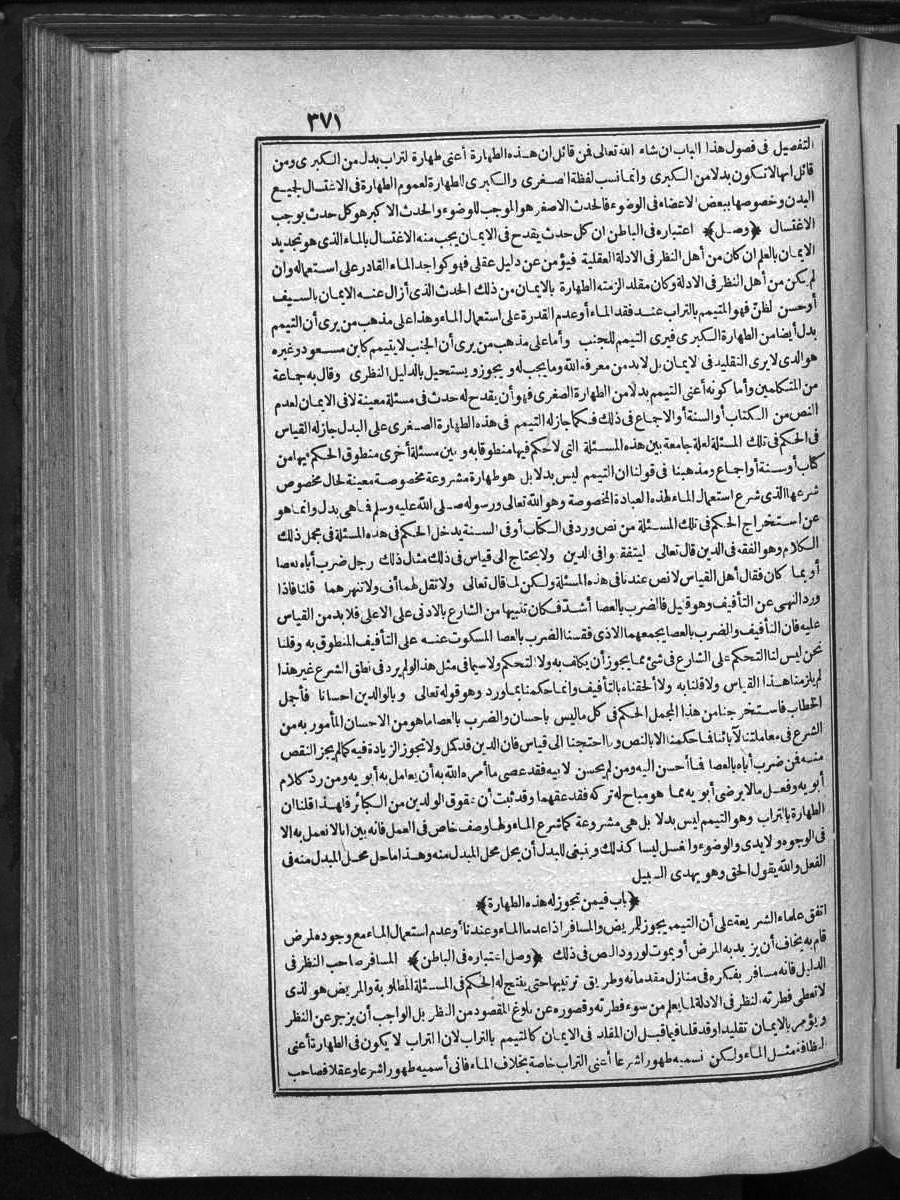 ٣٧١
التفصيل فى فصول هذا الباب ان شاء الله تعالى فن قائل ان هذه الطهارة أعنى طهارة التراب بدل من الكبرى ومن
قائل انها لا تكون بدلا من الكبرى وانما نسب لفظة الصغرى والكبرى للطهارة لعموم الطهارة فى الاغتسال لجميع
البدن وخصوصها ببعض الاعضاء فى الوضوء فالحدث الاصغر هو الموجب للوضوء والحدث الاكبر هو كل حدث يوجب
الاغتسال ﴿وصل﴾ اعتباره فى الباطن ان كل حدث يقدح فى الايمان يجب منه الاغتسال بالماء الذى هو تجديد
الايمان بالعلم ان كان من أهل النظر فى الادلة العقلية فيؤمن عن دليل عقلى فهو كواجد الماء القادر على استعماله وان
لم يكن من أهل النظر فى الادلة وكان مقلدا لزمته الطهارة بالايمان من ذلك الحدث الذى أزال عنه الايمان بالسيف
أو حسن الظن فهو المتيمم بالتراب عند فقد الماء أو عدم القدرة على استعمال الماء وهذا على مذهب من يرى أن التيمم
بدل أيضا من الطهارة الكبرى فيرى التيمم للجنب وأما على مذهب من يرى أن الجنب لا يتيمم كابن مسعود وغيره
هو الذى لا يرى التقليد فى الايمان بل لابد من معرفة الله وما يجب له ويجوز ويستحيل بالدليل النظرى وقال به جماعة
من المتكلمين وأما كونه أعنى التيمم بدلا من الطهارة الصغرى فهو أن يقدح له حدث فى مسئلة معينة لا فى الايمان لعدم
النص من الكتاب أو السنة أو الاجماع فى ذلك فكما جاز له التيمم فى هذه الطهارة الصغرى على البدل جاز له القياس
فى الحكم فى تلك المسئلة لعلة جامعة بين هذه المسئلة التى لا حكم فيها منطوقا به وبين مسئلة أخرى منطوق الحكم فيها من
كتاب أو سنة أو اجماع ومذهبنا فى قولنا ان التيمم ليس بدلا بل هو طهارة مشروعة مخصوصة معينة لحال مخصوص
شرعها الذى شرع استعمال الماء لهذه العبادة المخصوصة وهو الله تعالى ورسوله صلى الله عليه وسلم فما هى بدل وانما هو
عن استخراج الحكم فى تلك المسئلة من نص ورد فى الكتاب أو فى السنة يدخل الحكم فى هذه المسئلة فى مجمل ذلك
الكلام وهو الفقه فى الدين قال تعالى ليتفقهوا فى الدين ولا يحتاج الى قياس فى ذلك مثال ذلك رجل ضرب أباه بعصا
أو بما كان فقال أهل القياس لا نص عندنا فى هذه المسئلة ولكن لما قال تعالى ولا تقل لهما أف ولا تنهرهما قلنا فاذا
ورد النهى عن التأفيف وهو قليل فالضرب بالعصا أشد فكان تنبيها من الشارع بالادنى على الاعلى فلابد من القياس
عليه فان التأفيف والضرب بالعصا يجمعهما الاذى فقسنا الضرب بالعصا المسكوت عنه على التأفيف المنطوق به وقلنا
نحن ليس لنا التحكم على الشارع فى شئ مما يجوز أن يكلف به ولا التحكم ولا سيما فى مثل هذا لو لم يرد فى نطق الشرع غير هذا
لم يلزمنا هذا القياس ولا قلنا به ولا ألحقناه بالتأفيف وانما حكمنا بما ورد وهو قوله تعالى وبالوالدين احسانا فأجمل
الخطاب فاستخرجنا من هذا المجمل الحكم فى كل ما ليس باحسان والضرب بالعصا ما هو من الاحسان المأمور به من
الشرع فى معاملتنا لآبائنا فما حكمنا الا بالنص وما احتجنا الى قياس فان الدين قد كمل ولا تجوز الزيادة فيه كما لم يجز النقص
منه فن ضرب أباه بالعصا فما أحسن اليه ومن لم يحسن لابيه فقد عصى ما أمره الله به أن يعامل به أبويه ومن رد كلام
أبويه وفعل ما لا يرضى أبويه مما هو مباح له تركه فقد عقهما وقد ثبت أن عقوق الوالدين من الكبائر فلهذا قلنا ان
الطهارة بالتراب وهو التيمم ليس بدلا بل هى مشروعة كما شرع الماء ولها وصف خاص فى العمل فانه بين انا لا نعمل به الا
فى الوجوه والايدى والوضوء والغسل ليسا كذلك وينبغى للبدل أن يحل محل المبدل منه وهذا ما حل محل المبدل منه فى
الفعل والله يقول الحق وهو يهدى السبيل
﴿باب فيمن تجوز له هذه الطهارة﴾
اتفق علماء الشريعة على أن التيمم يجوز للمريض والمسافر اذا عدما الماء وعندنا أو عدم استعمال الماء مع وجوده لمرض
قام به يخاف أن يزيد به المرض أو يموت لورود النص فى ذلك ﴿وصل اعتباره فى الباطن﴾ المسافر صاحب النظر فى
الدليل فانه مسافر بفكره فى منازل مقدماته وطريق ترتيبها حتى ينتج له الحكم فى المسئلة المطلوبة والمريض هو الذى
لا تعطى فطرته النظر فى الادلة لما يعلم من سوء فطرته وقصوره عن بلوغ المقصود من النظر بل الواجب أن يزجر عن النظر
ويؤمر بالايمان تقليدا وقد قلنا فيما قبل ان المقلد فى الايمان كالمتيمم بالتراب لان التراب لا يكون فى الطهارة أعنى
النظافة مثل الماء ولكن نسميه طهورا شرعا أعنى التراب خاصة بخلاف الماء فانى أسميه طهورا شرعا وعقلا فصاحب